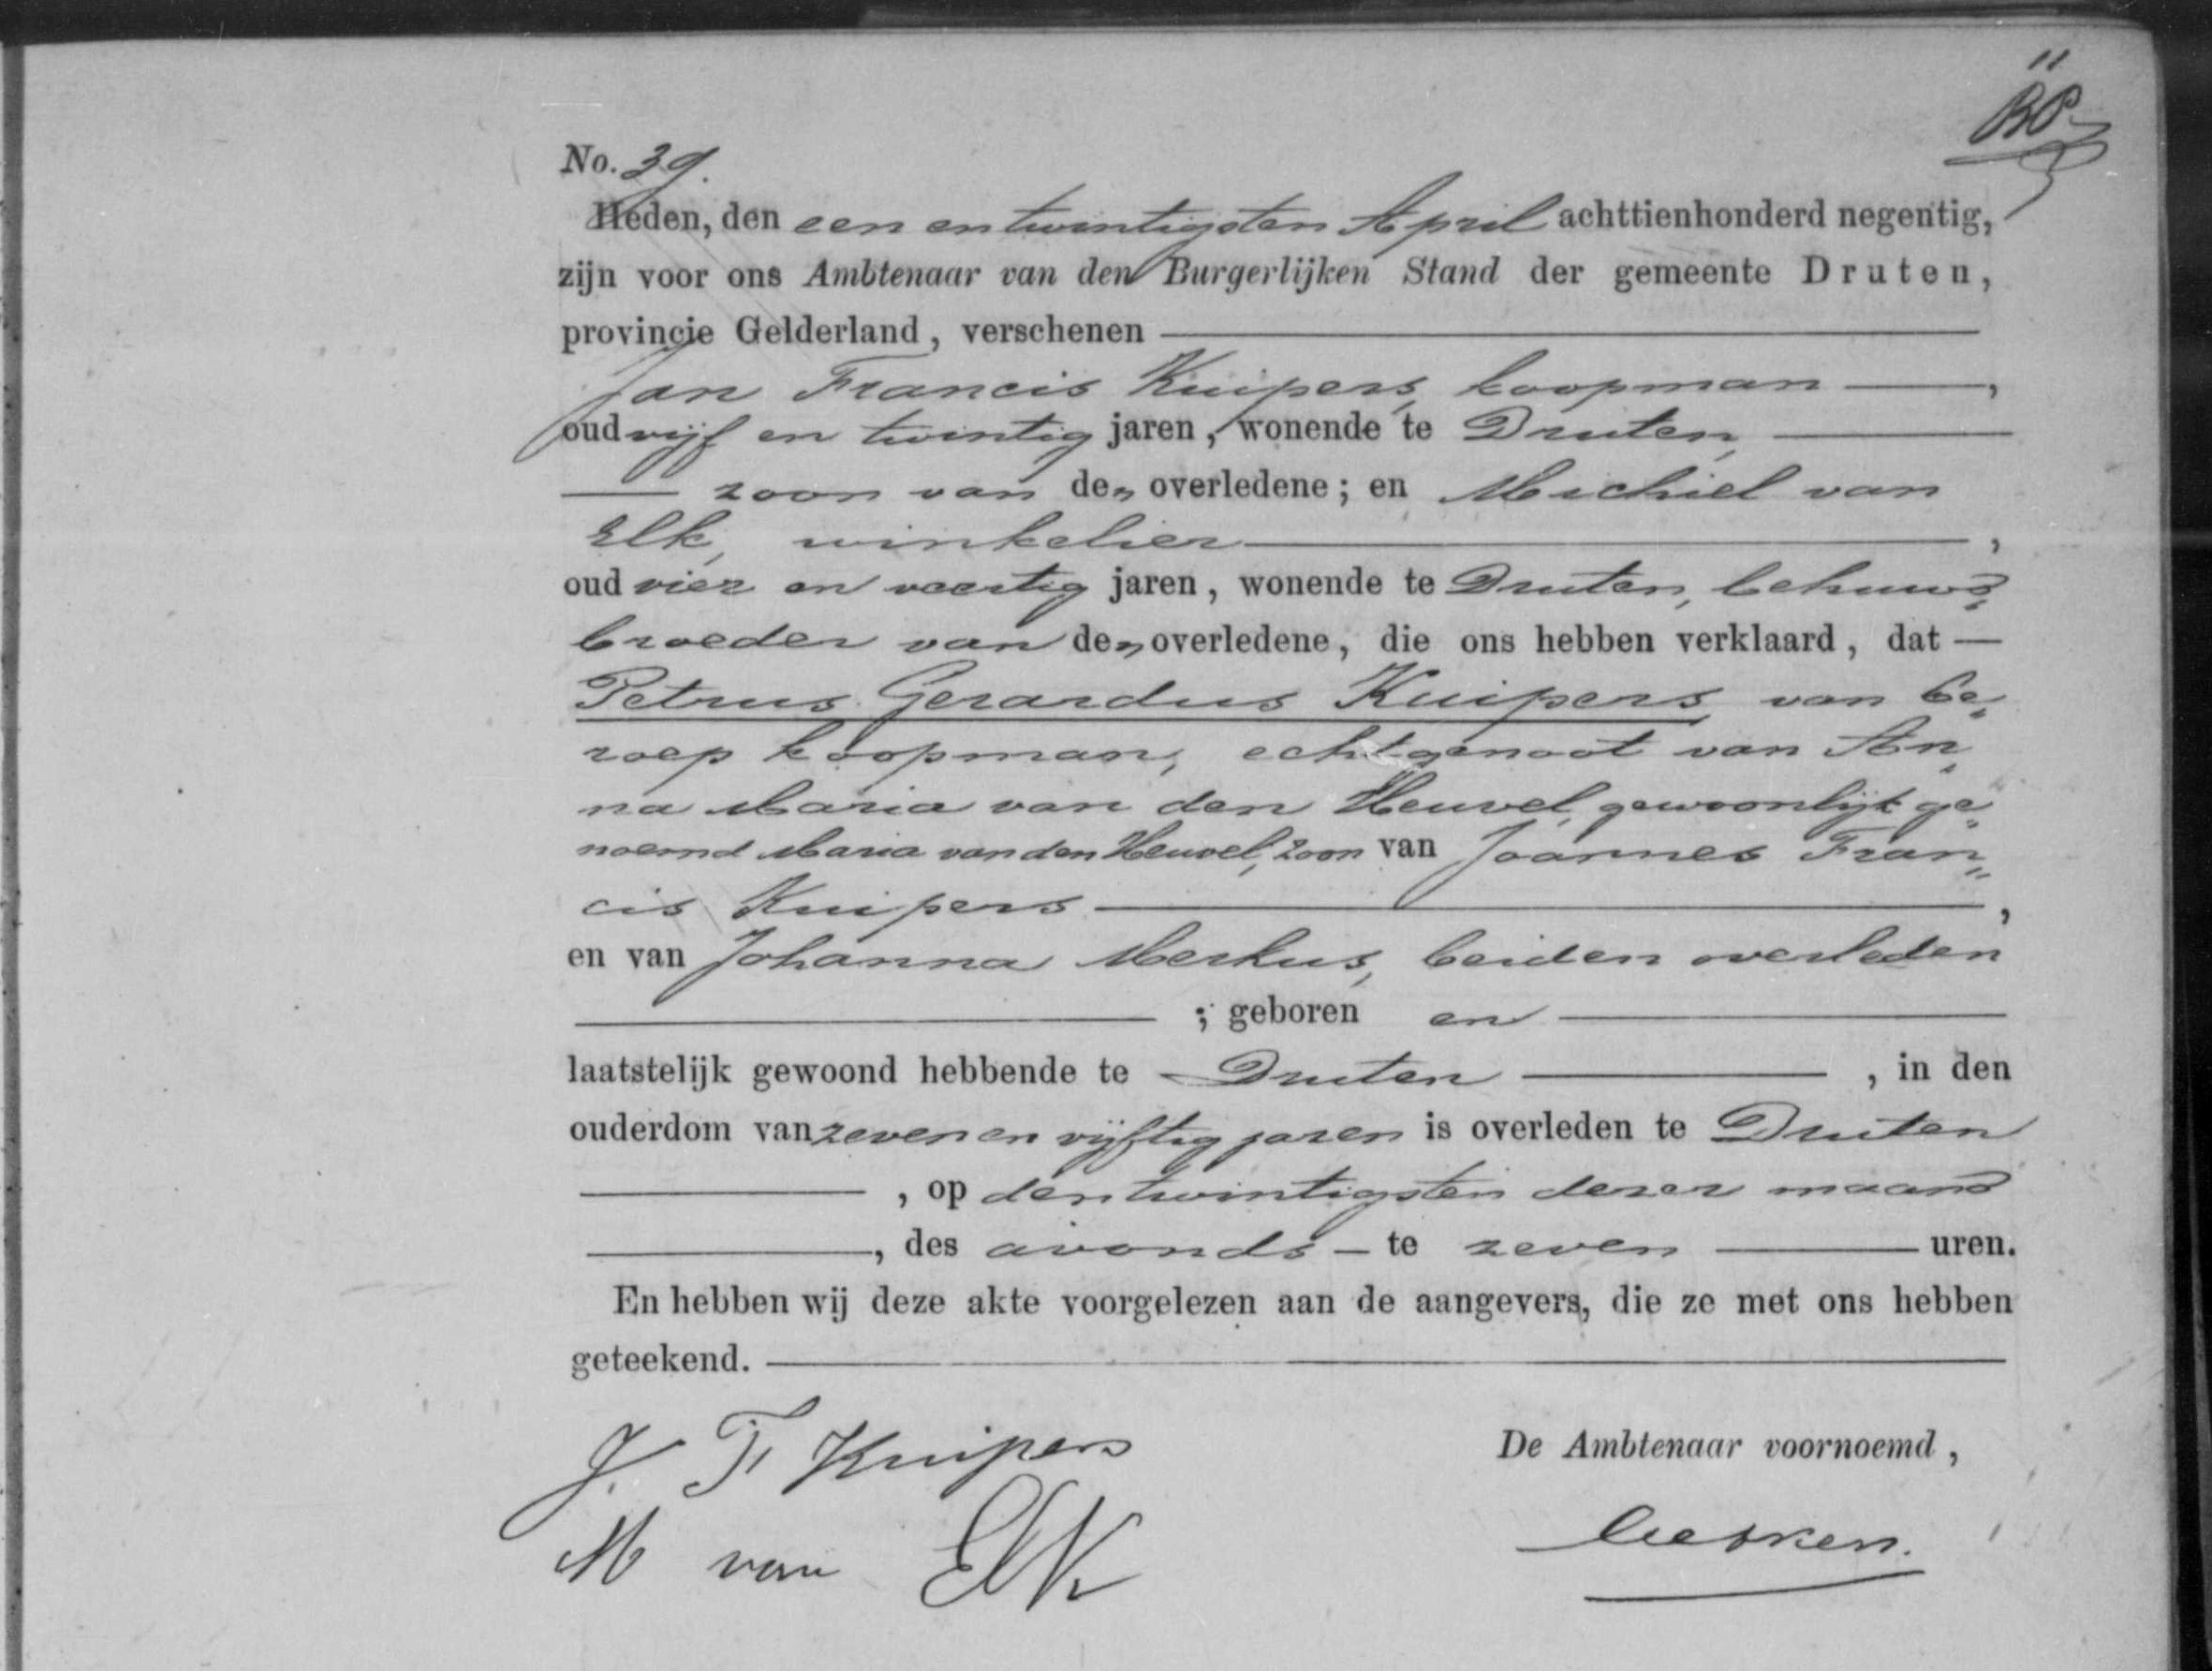 11
No. 39.
Heden, den een en twintigsten April achttienhonderd negentig,
zijn voor ons Ambtenaar van den Burgerlijken Stand der gemeente Druten,
provincie Gelderland, verschenen
Jan Francis Kuipers, koopman,
oud vijf en twintig jaren, wonende te Druten,
zoon van den overledene; en Michiel van
Elk, winkelier,
oud vier en veertig jaren, wonende te Druten, behuwd„
broeder van den overledene, die ons hebben verklaard, dat
Petrus Gerardus Kuipers, van be„
roep koopman, echtgenoot van An„
na Maria van den Heuvel, gewoonlijk ge„
noemd Maria van den Heuvel, zoon van Joannes Fran„
cis Kuipers,
en van Johanna Merkus, beiden overleden
; geboren en
laatstelijk gewoond hebbende te Druten, in den
ouderdom van zeven en vijftig jaren is overleden te Druten
, op den twintigsten dezer maand
, des avonds te zeven uren.
En hebben wij deze akte voorgelezen aan de aangevers, die ze met ons hebben
geteekend.
J. F Kuipers
De Ambtenaar voornoemd,
M van Elk